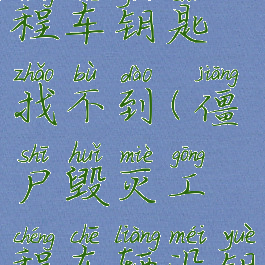 程车钥匙
zhǎo bù dào jiāng
找不到(僵
shī huǐ miè gōng
尸毁灭工
chéng chē liàng méi yuè
程车辆没钥